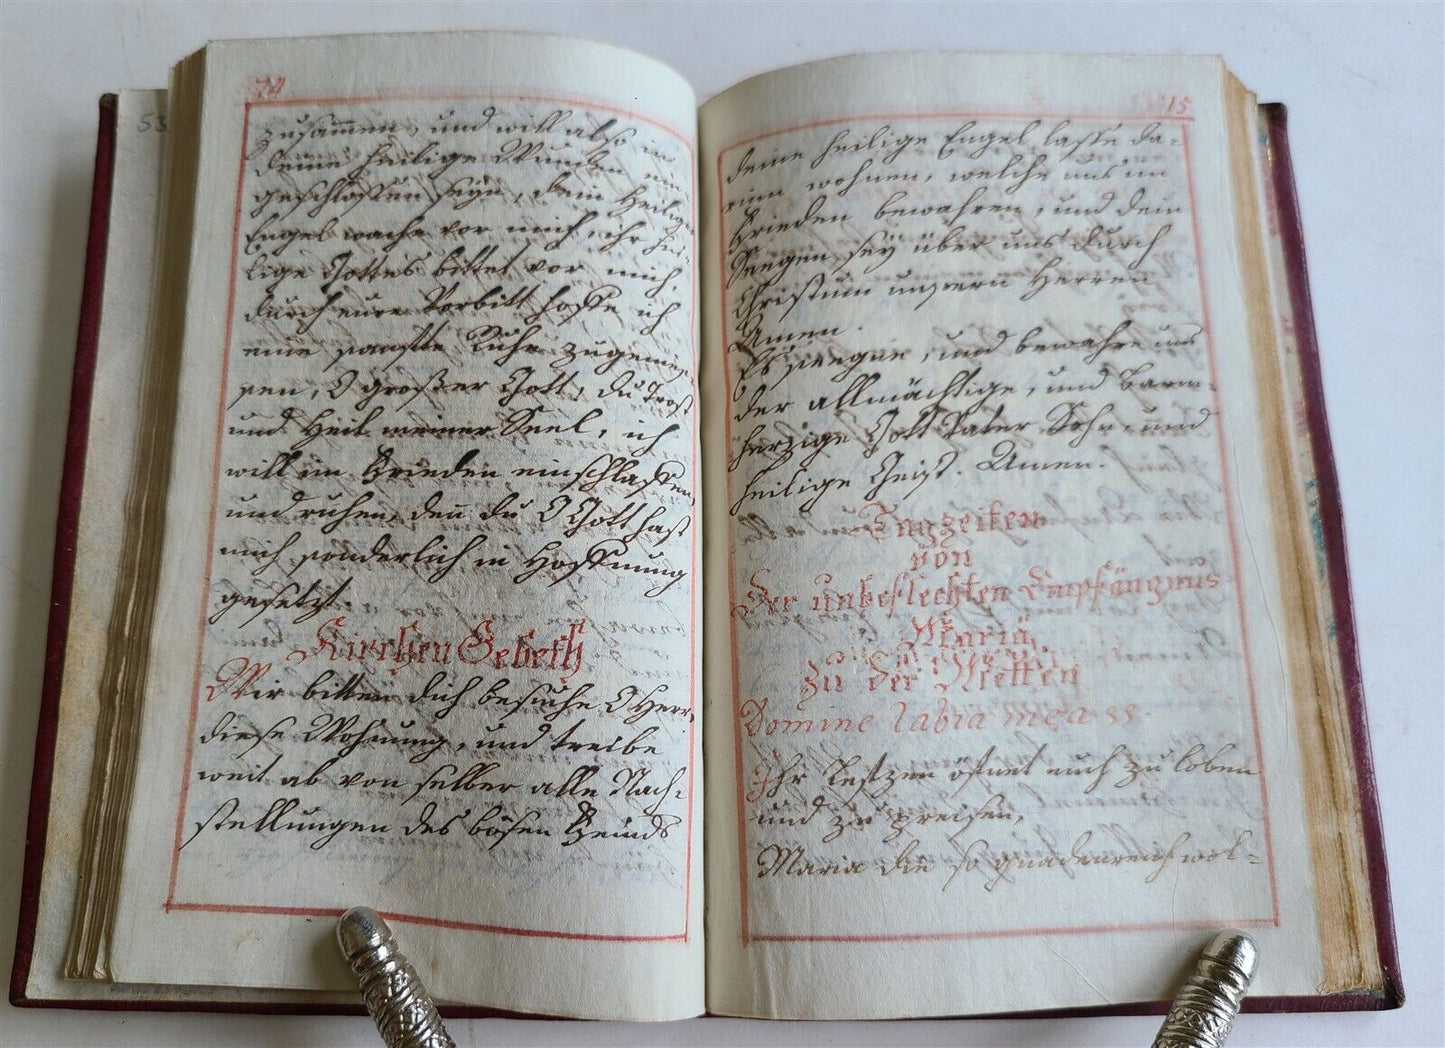 74
zusam̄en, und will also in
deine heilige Wunden ein
geschlossen seÿn, dein heiliger
Engel wache vor mich, ihr hei-
lige Gottes bittet vor mich,
durch eure Vorbitt hoffe ich
eine sanffte Ruhe zugenies-
sen, O großer Gott, du Trost
und Heil meiner Seel, ich
will im Frieden einschlaffen,
und ruhen, den̄ du O Gott hast
mich sonderlich in Hoffnung
gesetzt.
Kirchen Gebeth
Wir bitten dich besuche O Herr,
diese Wohnung, und treibe
weit ab von selber alle Nach-
stellungen des bösen Feinds
53
15
deine heilige Engel lasse da-
rinn wohnen, welche uns im
Frieden bewahren, und dein
Seegen seÿ über uns durch
Christum unsern Herren,
Amen.
Es seegne, und bewahre uns
der allmächtige, und barm-
herzige Gott Vater Sohn, und
heilige Geist. Amen.
Tagzeiten
von
Der unbeflechten Empfängnus
Mariä,
Zu Der Metten
Domine labia mea ss.
Ihr Lefzen öfnet euch zu loben
und zu preisen,
Maria die so gnadenreich wol-